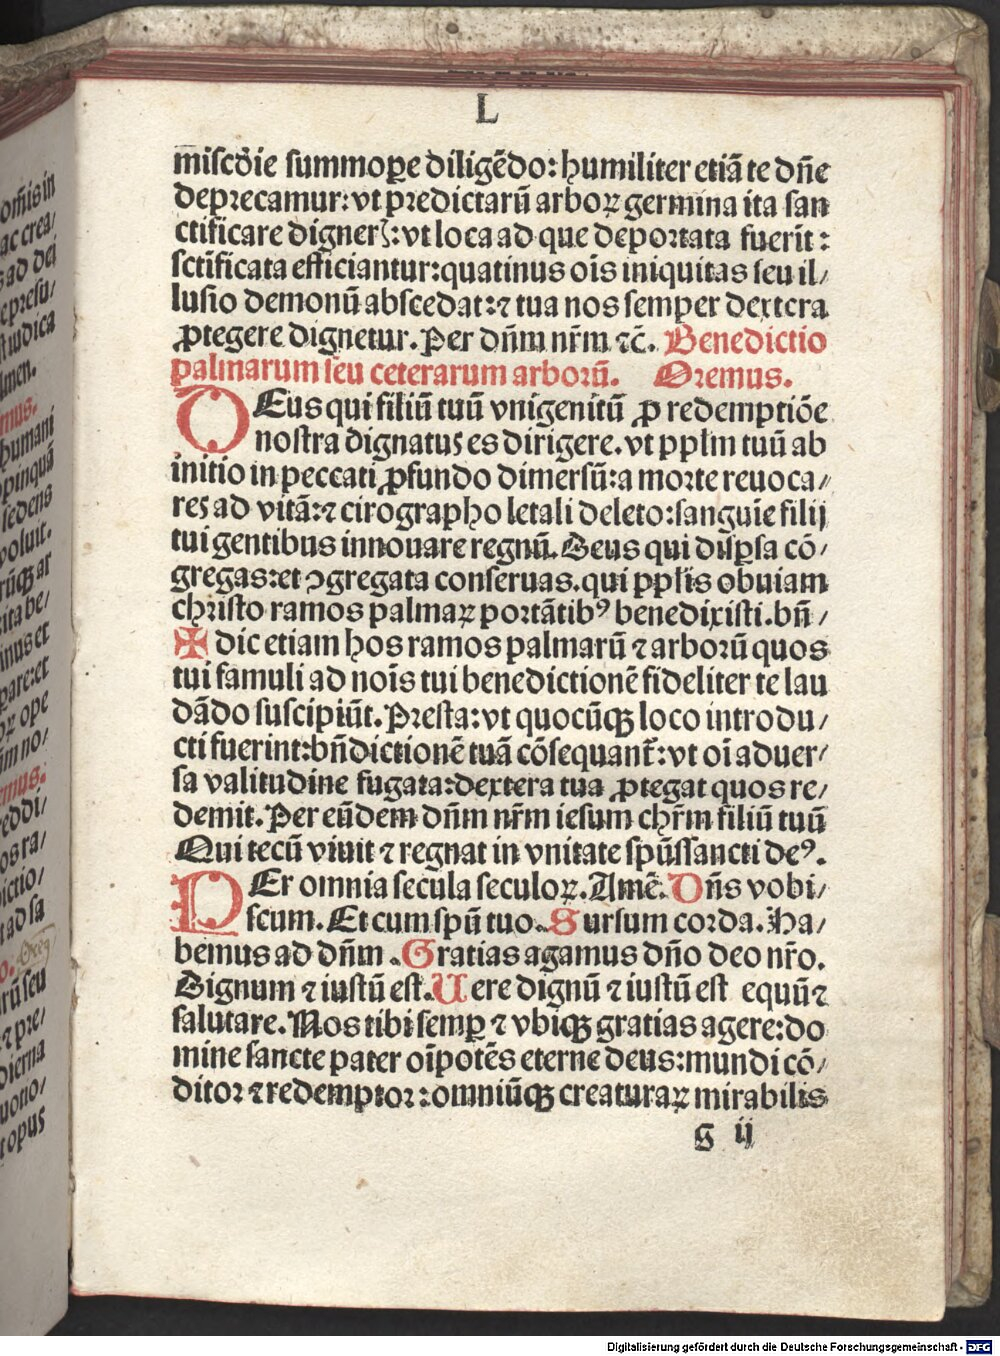 L
miscdie summopꝑe diligēdo: humiliter etiā te dn̄e
deprecamur: vt predictarū arboꝝ germina ita san
ctificare digneris: vt loca ad que deportata fuerīt:
sctīficata efficiantur: quatinus oīs iniquitas seu il/
lusio demonū abscedat: ⁊ tua nos semper dextera
ꝓtegere dignetur. Per dn̄m nr̄m ⁊c̄. Benedictio
palmarum seu ceterarum arborū. Oremus.
DEus qui filiū tuū vnigenitū ꝓ redemptiōe
nostra dignatus es dirigere. vt pplm̄ tuū ab
initio in peccati ꝓfundo dimersū: a morte reuoca/
res ad vitā: ⁊ cirographo letali deleto: sanguīe filij
tui gentibus innouare regnū. Deus qui disꝑsa cō/
gregas: et ꝯgregata conseruas. qui pplīs obuiam
christo ramos palmaꝝ portātibꝰ benedixisti. bn̄/
✠ dic etiam hos ramos palmarū ⁊ arborū quos
tui famuli ad noīs tui benedictionē fideliter te lau
dādo suscipiūt. Presta: vt quocūqꝫ loco introdu/
cti fuerint: bn̄dictionē tuā cōsequant̄: vt oī aduer/
sa valitudine fugata: dextera tua ꝓtegat quos re/
demit. Per eūdem dn̄m nr̄m iesum chr̄m filiū tuū
Qui tecū viuit ⁊ regnat in vnitate spūssancti deꝰ.
PEr omnia secula seculoꝝ. Amē. Dn̄s vobi/
scum. Et cum spū tuo. Sursum corda. Ha/
bemus ad dn̄m. Gratias agamus dn̄o deo nr̄o.
Dignum ⁊ iustū est. Uere dignū ⁊ iustū est equū ⁊
salutare. Nos tibi semꝑ ⁊ vbiqꝫ gratias agere: do
mine sancte pater oīpotēs eterne deus: mundi cō/
ditor ⁊ redemptor: omniūqꝫ creaturaꝝ mirabilis
G ij
Digitalisierung gefördert durch die Deutsche Forschungsgemeinschaft - DFG